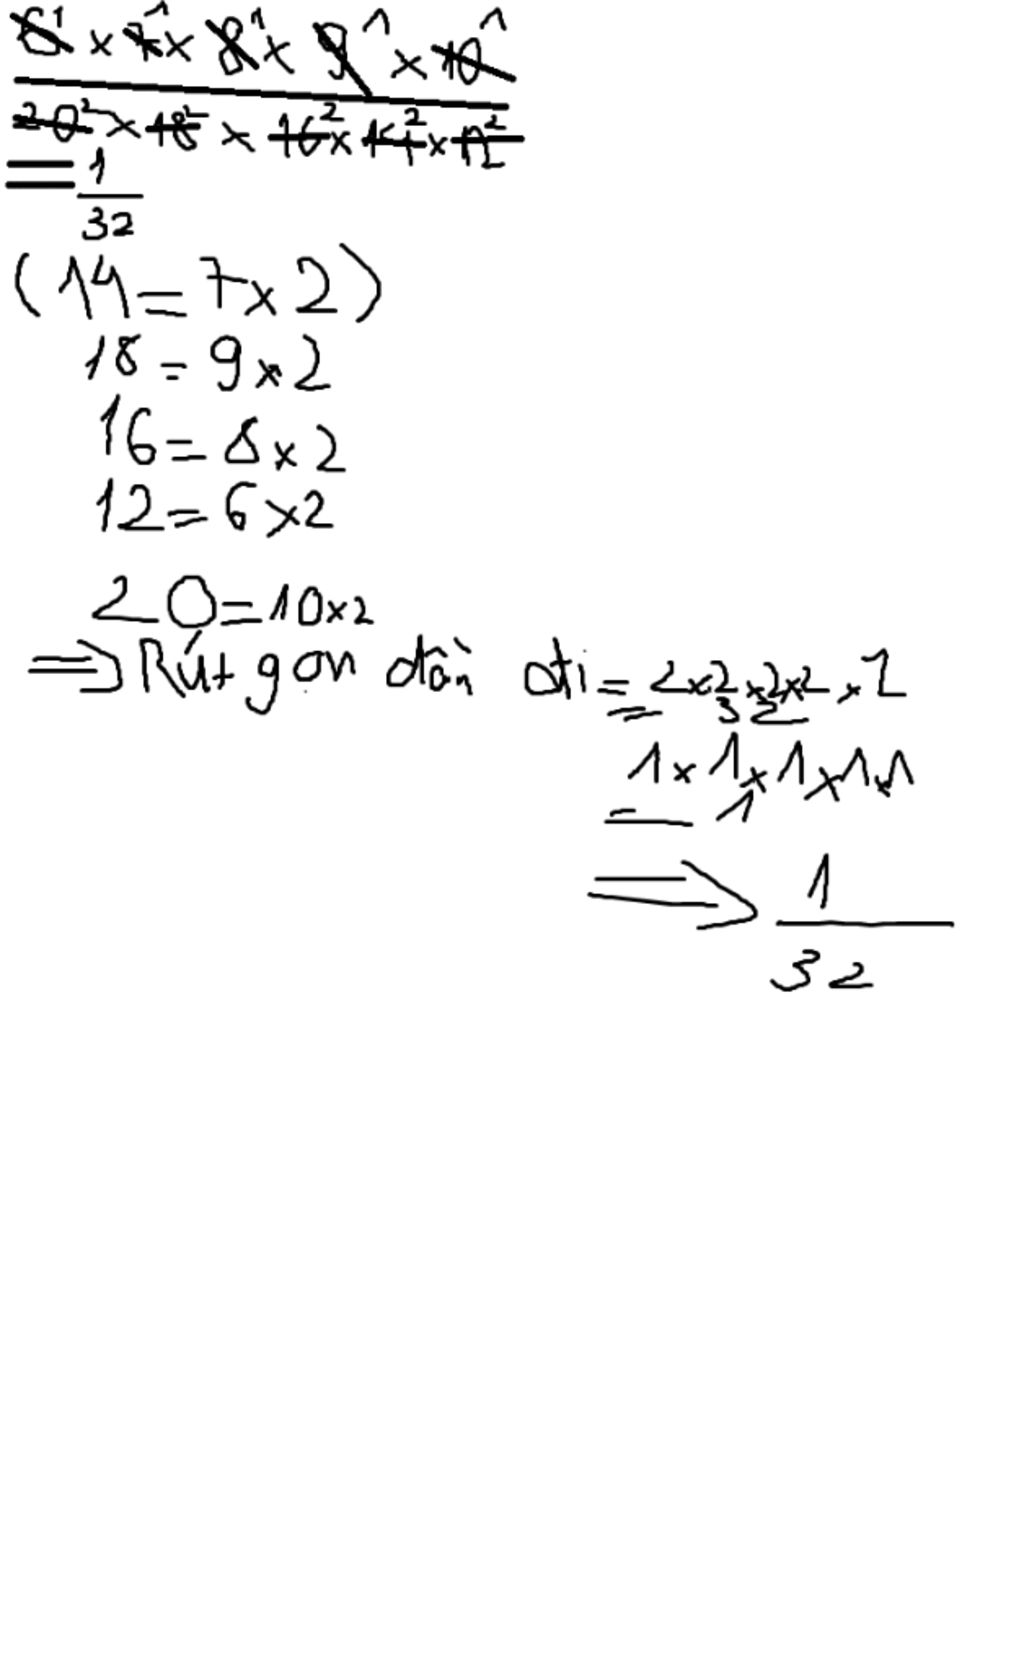 6¹ × 7¹ × 8¹ × 9¹ × 10¹
20² × 18² × 16² × 14² × 12²
= 1
32
(14 = 7 × 2)
18 = 9 × 2
16 = 8 × 2
12 = 6 × 2
20 = 10 × 2
⇒ Rút gọn dần đi = 2 × 2 × 2 × 2 × 2
= 32
1 × 1 × 1 × 1 × 1
= 1
⇒ 1
32